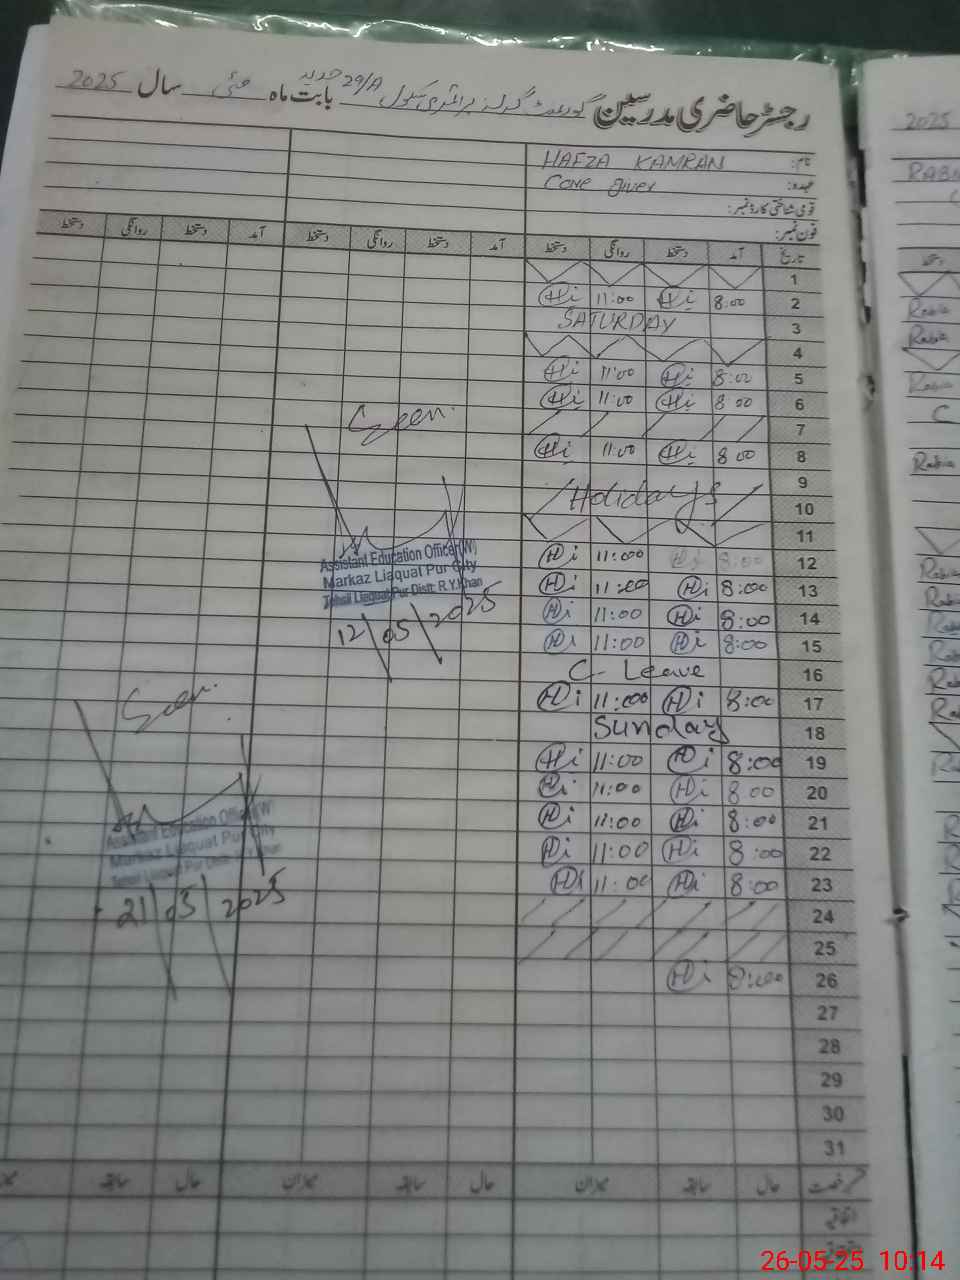 رجسٹر حاضری مدرسین گورنمنٹ گرلز پرائمری سکول 29/A جدید بابت ماہ مئی سال 2025
نام: HAFZA KAMRAN
عہدہ: Care giver
قومی شناختی کارڈ نمبر:
فون نمبر:
تاریخ آمد دستخط روانگی دستخط آمد دستخط روانگی دستخط آمد دستخط روانگی دستخط
1
2 8:00 Hi 11:00 Hi
3 SATURDAY
4
5 8:00 Hi 11:00 Hi
6 8:00 Hi 11:00 Hi
7
8 8:00 Hi 11:00 Hi
9
10 Holidays
11
12 8:00 Hi 11:00 Hi
13 8:00 Hi 11:00 Hi
14 8:00 Hi 11:00 Hi
15 8:00 Hi 11:00 Hi
16 C- Leave
17 8:00 Hi 11:00 Hi
18 Sunday
19 8:00 Hi 11:00 Hi
20 8:00 Hi 11:00 Hi
21 8:00 Hi 11:00 Hi
22 8:00 Hi 11:00 Hi
23 8:00 Hi 11:00 Hi
24
25
26 8:00 Hi
27
28
29
30
31
رخصت حال سابقہ میزان حال سابقہ میزان حال سابقہ
اتفاقیہ
Seen.
Assistant Education Officer(W)
Markaz Liaquat Pur City
Tehsil Liaquat Pur Distt: R.Y.Khan
12/05/2025
Seen.
Assistant Education Officer(W)
Markaz Liaquat Pur City
Tehsil Liaquat Pur Distt: R.Y.Khan
21/05/2025
2025
دستخط
Rabia
Rabia
Rabia
C
Rabia
Rabia
Rabia
Rabia
Rabia
26-05-25 10:14